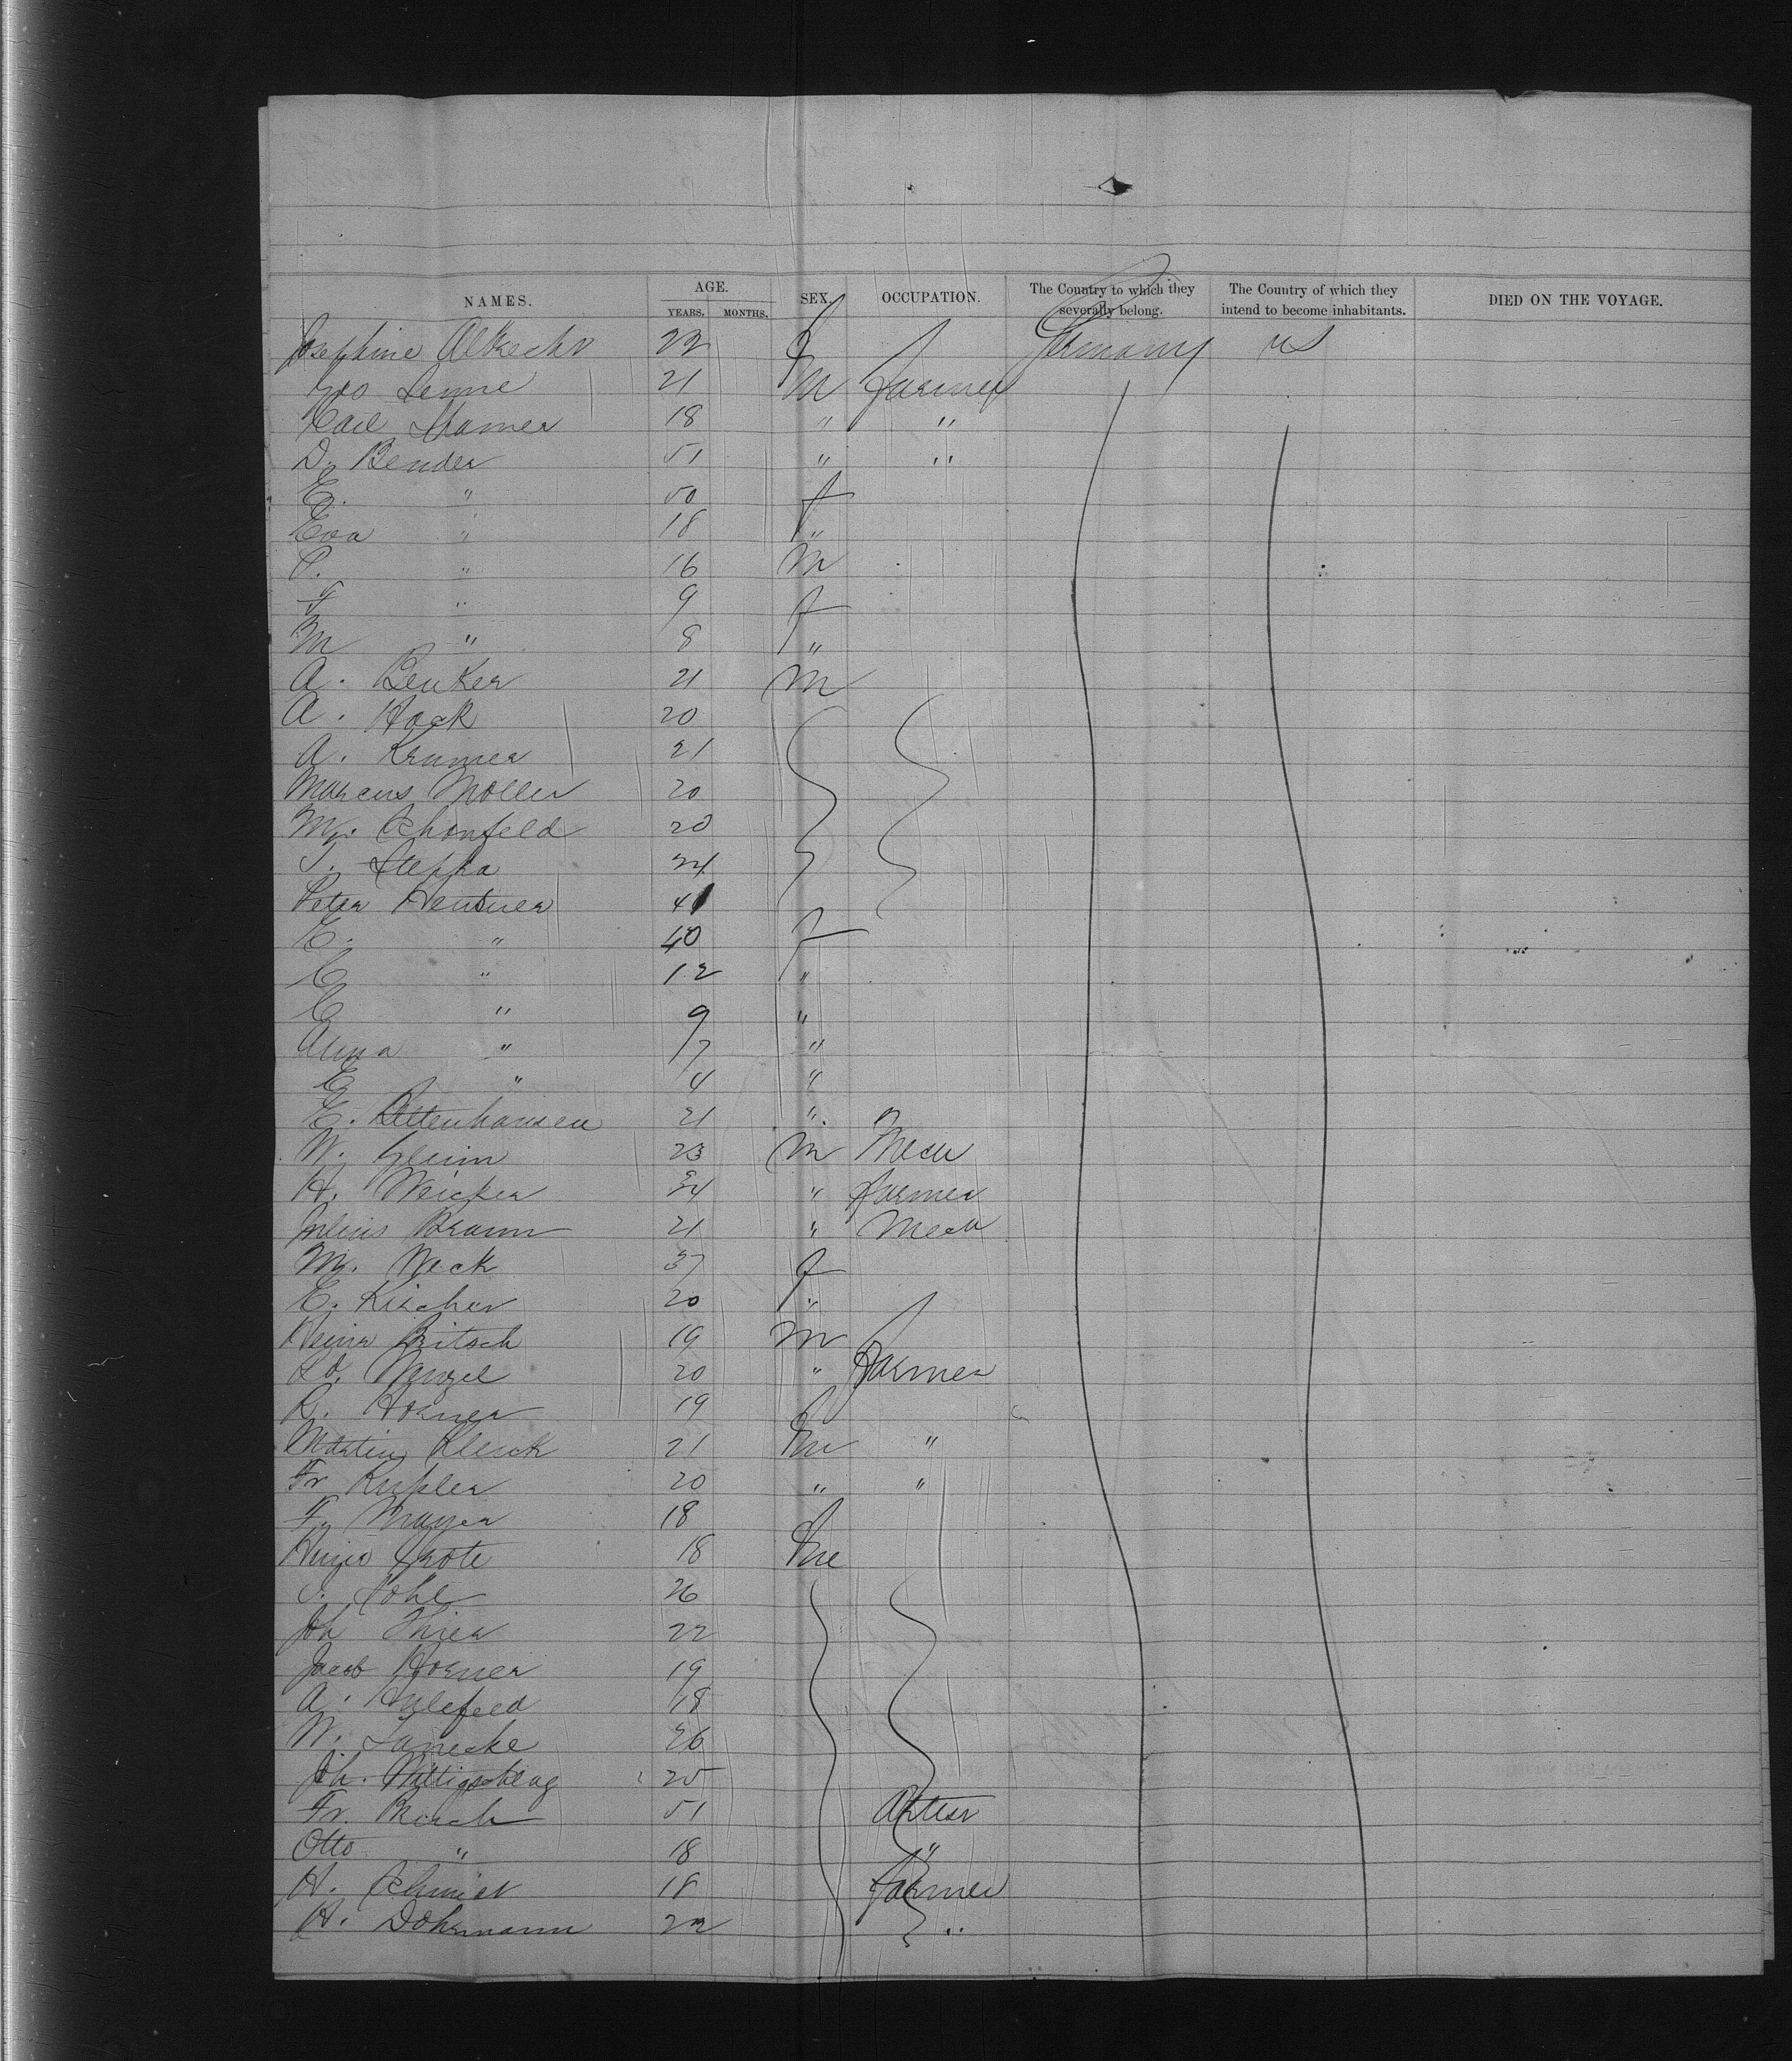 NAMES. AGE. YEARS. MONTHS. SEX. OCCUPATION. The Country to which they severally belong. The Country of which they intend to become inhabitants. DIED ON THE VOYAGE.
Josephine Albrecht 22 f Germany US
Geo Lenne 21 m farmer
Carl Mamer 18 " "
D. Bender 51 " "
E. " 50 f
Eva " 18 "
P. " 16 m
F " 9 f
M " 8 "
A. Beuker 21 m
A. Hock 20
A. Kramer 21
Marcus Moller 20
M. Schonfeld 20
Stepka 24
Peter Hentner 41
E. " 40 f
E " 12 "
E " 9 "
Anna " 7 "
E " 4 "
E. Rettenhausen 21 "
W. Gleim 23 m Mech
H. Weicker 34 " farmer
Julius Braun 21 " Mech
M. Neck 37 f
E. Kircher 20 "
Heinr Britsch 19 m
Ld. Wenzel 20 " Farmer
R. Horner 19
Martin Klenk 21 m "
Fr Kupler 20 " "
F. Mayer 18
Hugo Grote 18 m
Pohl 26
Joh Thier 22
Jacob Horner 19
A. 18
W. Janecke 26
Joh. 25
Fr. 51 Artist
Otto " 18 "
H. Schmidt 18 Farmer
H. Dohrmann 22 "